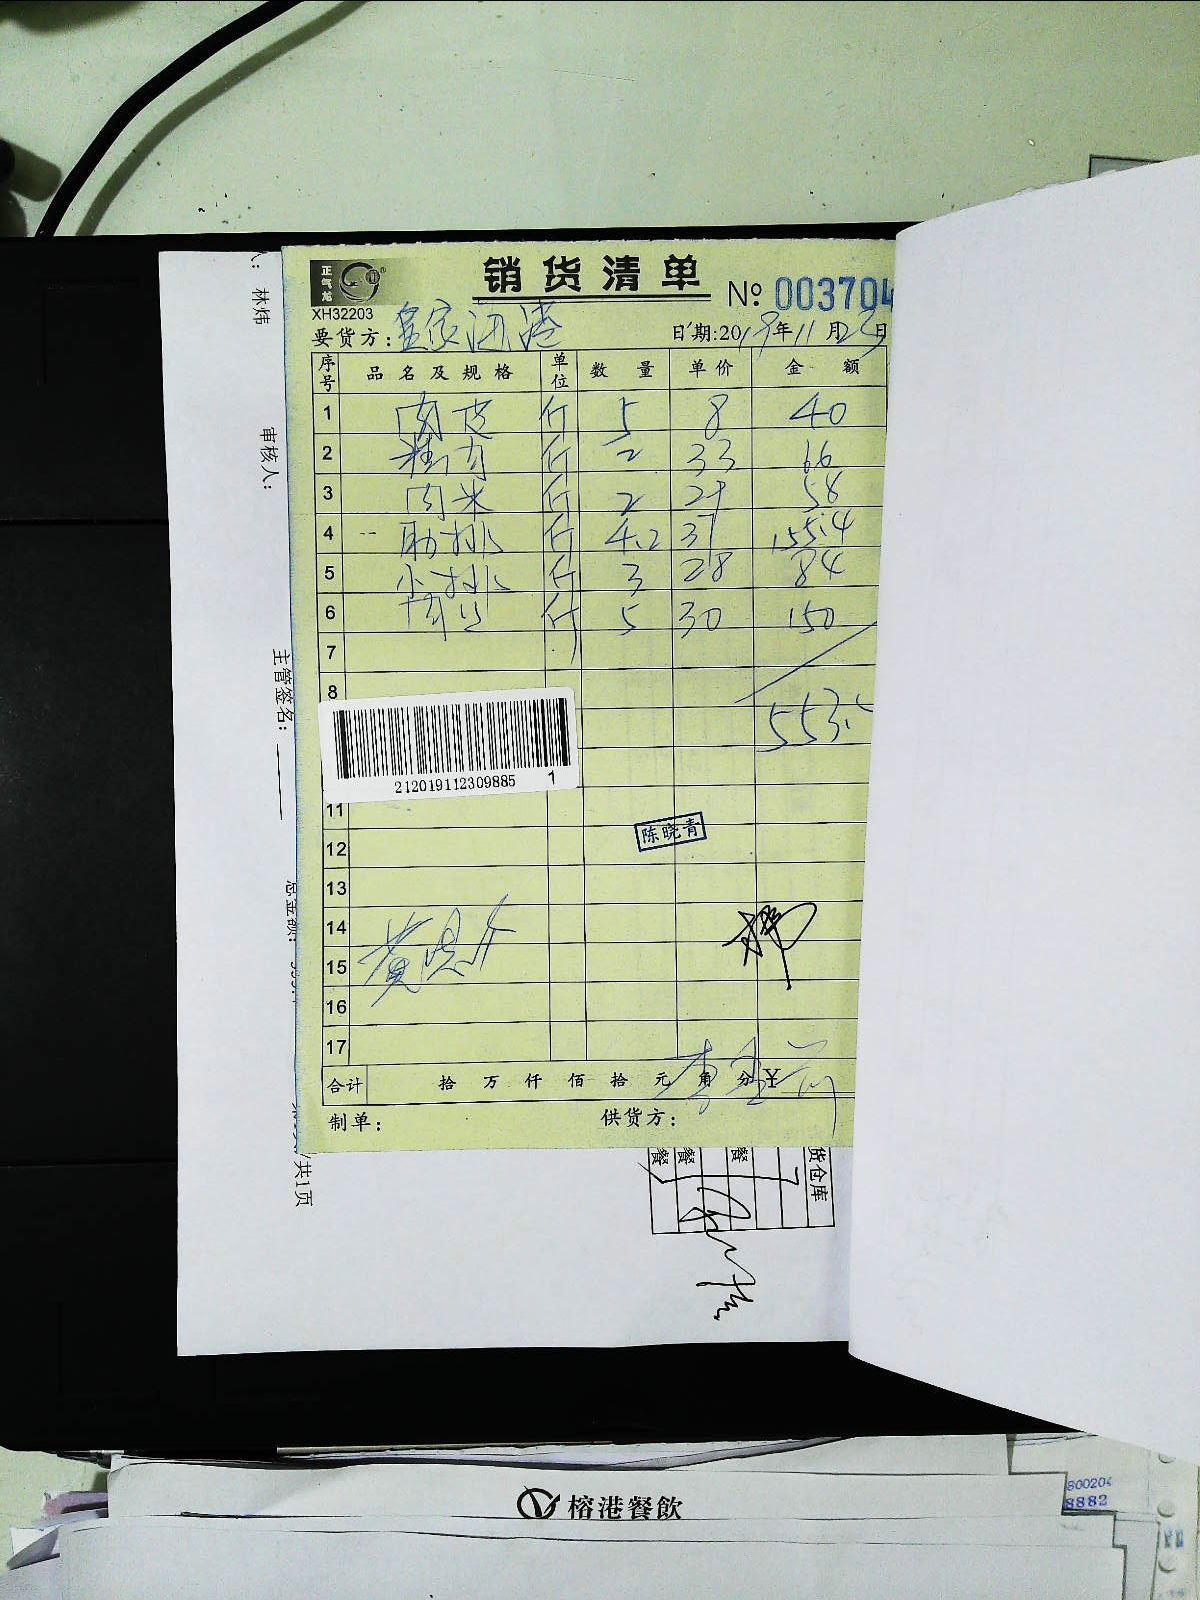 正气龙
销货清单
XH32203
№: 003704
要货方: 皇家西港
日期: 2019年11月23日
序号 品名及规格 单位 数量 单价 金额
1 肉皮 斤 5 8 40
2 斤 2 33 66
3 肉米 斤 2 29 58
4 肋排 斤 4.2 37 155.4
5 小排 斤 3 28 84
6 斤 5 30 150
7
8
553.
212019112309885 1
11
12 陈晓青
13
14
15
16
17
合计 拾万仟佰拾元角分 ¥
制单: 供货方:
林炜
审核人:
主管签名:
总金额:
共1页
货仓库
餐
餐
餐
榕港餐飲
800204
8882